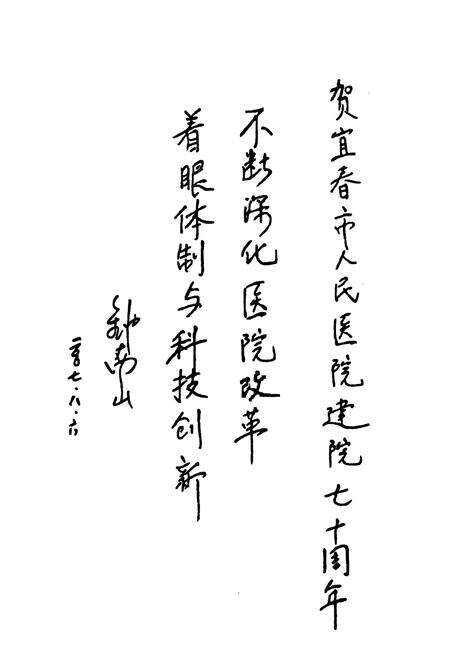 贺宜春市人民医院建院七十周年
不断深化医院改革
着眼体制与科技创新
钟南山
二〇〇七.八.六